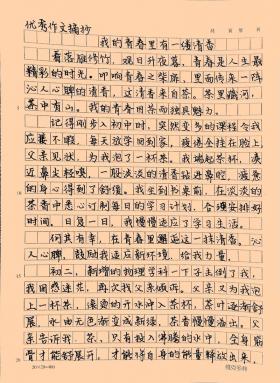 优秀作文摘抄
我的青春里有一缕清香
看落雁修竹，观日升夜落，青春是人生最
精彩的时光。叩响青春之柴扉，里面传来一阵
沁人心脾的清香，这清香来自茶。茶里藏河，
茶中有山，我的青春因茶而独具魅力。
记得刚步入初中时，突然变多的课程令我
应接不暇，每天放学回到家，疲倦全挂在脸上，
父亲见状，为我泡了一杯茶。我端起茶杯，凑
近鼻尖轻嗅，一股淡淡的清香钻进鼻腔，疲惫
的身心得到了舒缓。我坐到书桌前，在淡淡的
茶香中悉心订制每日的学习计划，合理安排好
时间。日复一日，我慢慢适应了学习生活。
何其有幸，在青春里邂逅这一抹清香。沁
人心脾，鼓励我适应新环境，给我力量。
初二，新增的物理学科一下子击倒了我，
我困惑迷茫，再次找父亲倾诉。父亲又为我泡
上一杯茶，滚烫的开水冲入茶杯，茶叶逐渐舒
展，水由无色渐变成新绿，茶香慢慢溢出。父
亲告诉我，茶，只有投入沸腾的水中，全身筋
骨才能舒展开，才能将自身的能量释放出来。
20×20=400